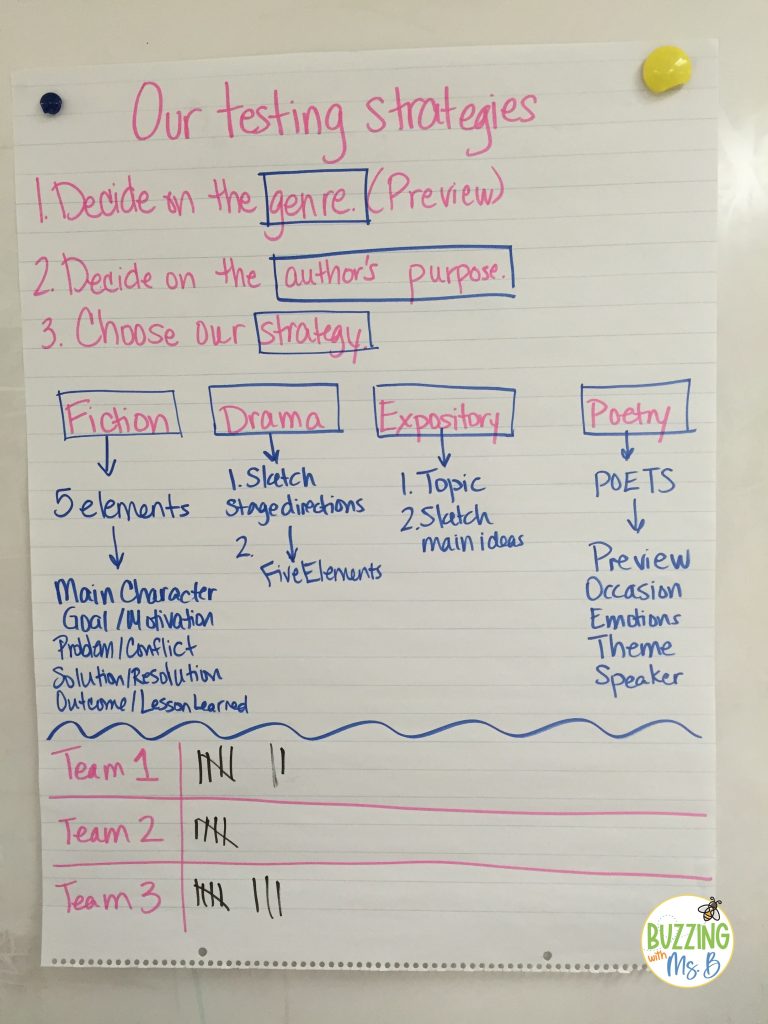 Our testing strategies
1. Decide on the genre. (Preview)
2. Decide on the author's purpose.
3. Choose our strategy.
Fiction
5 elements
Main Character
Goal/Motivation
Problem/Conflict
Solution/Resolution
Outcome/Lesson Learned
Drama
1. Sketch
stage directions
2.
Five Elements
Expository
1. Topic
2. Sketch
main ideas
Poetry
POETS
Preview
Occasion
Emotions
Theme
Speaker
Team 1
Team 2
Team 3
BUZZING
with
Ms. B